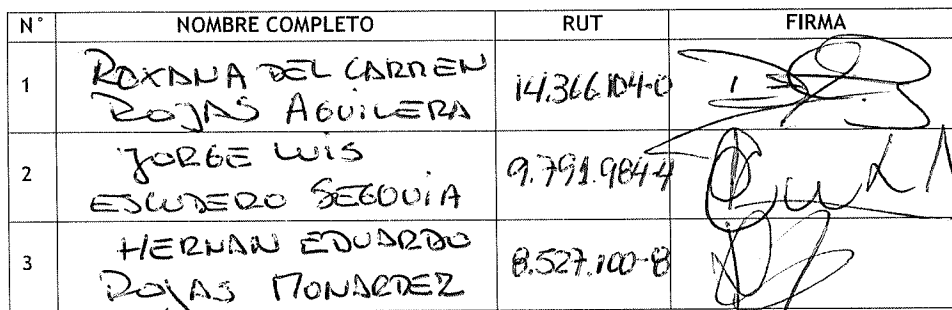 N° NOMBRE COMPLETO RUT FIRMA
1 ROXANA DEL CARMEN ROJAS AGUILERA 14.366.104-0
2 JORGE LUIS ESCUDERO SEGOVIA 9.791.984-4
3 HERNAN EDUARDO ROJAS MONARDEZ 8.527.100-8